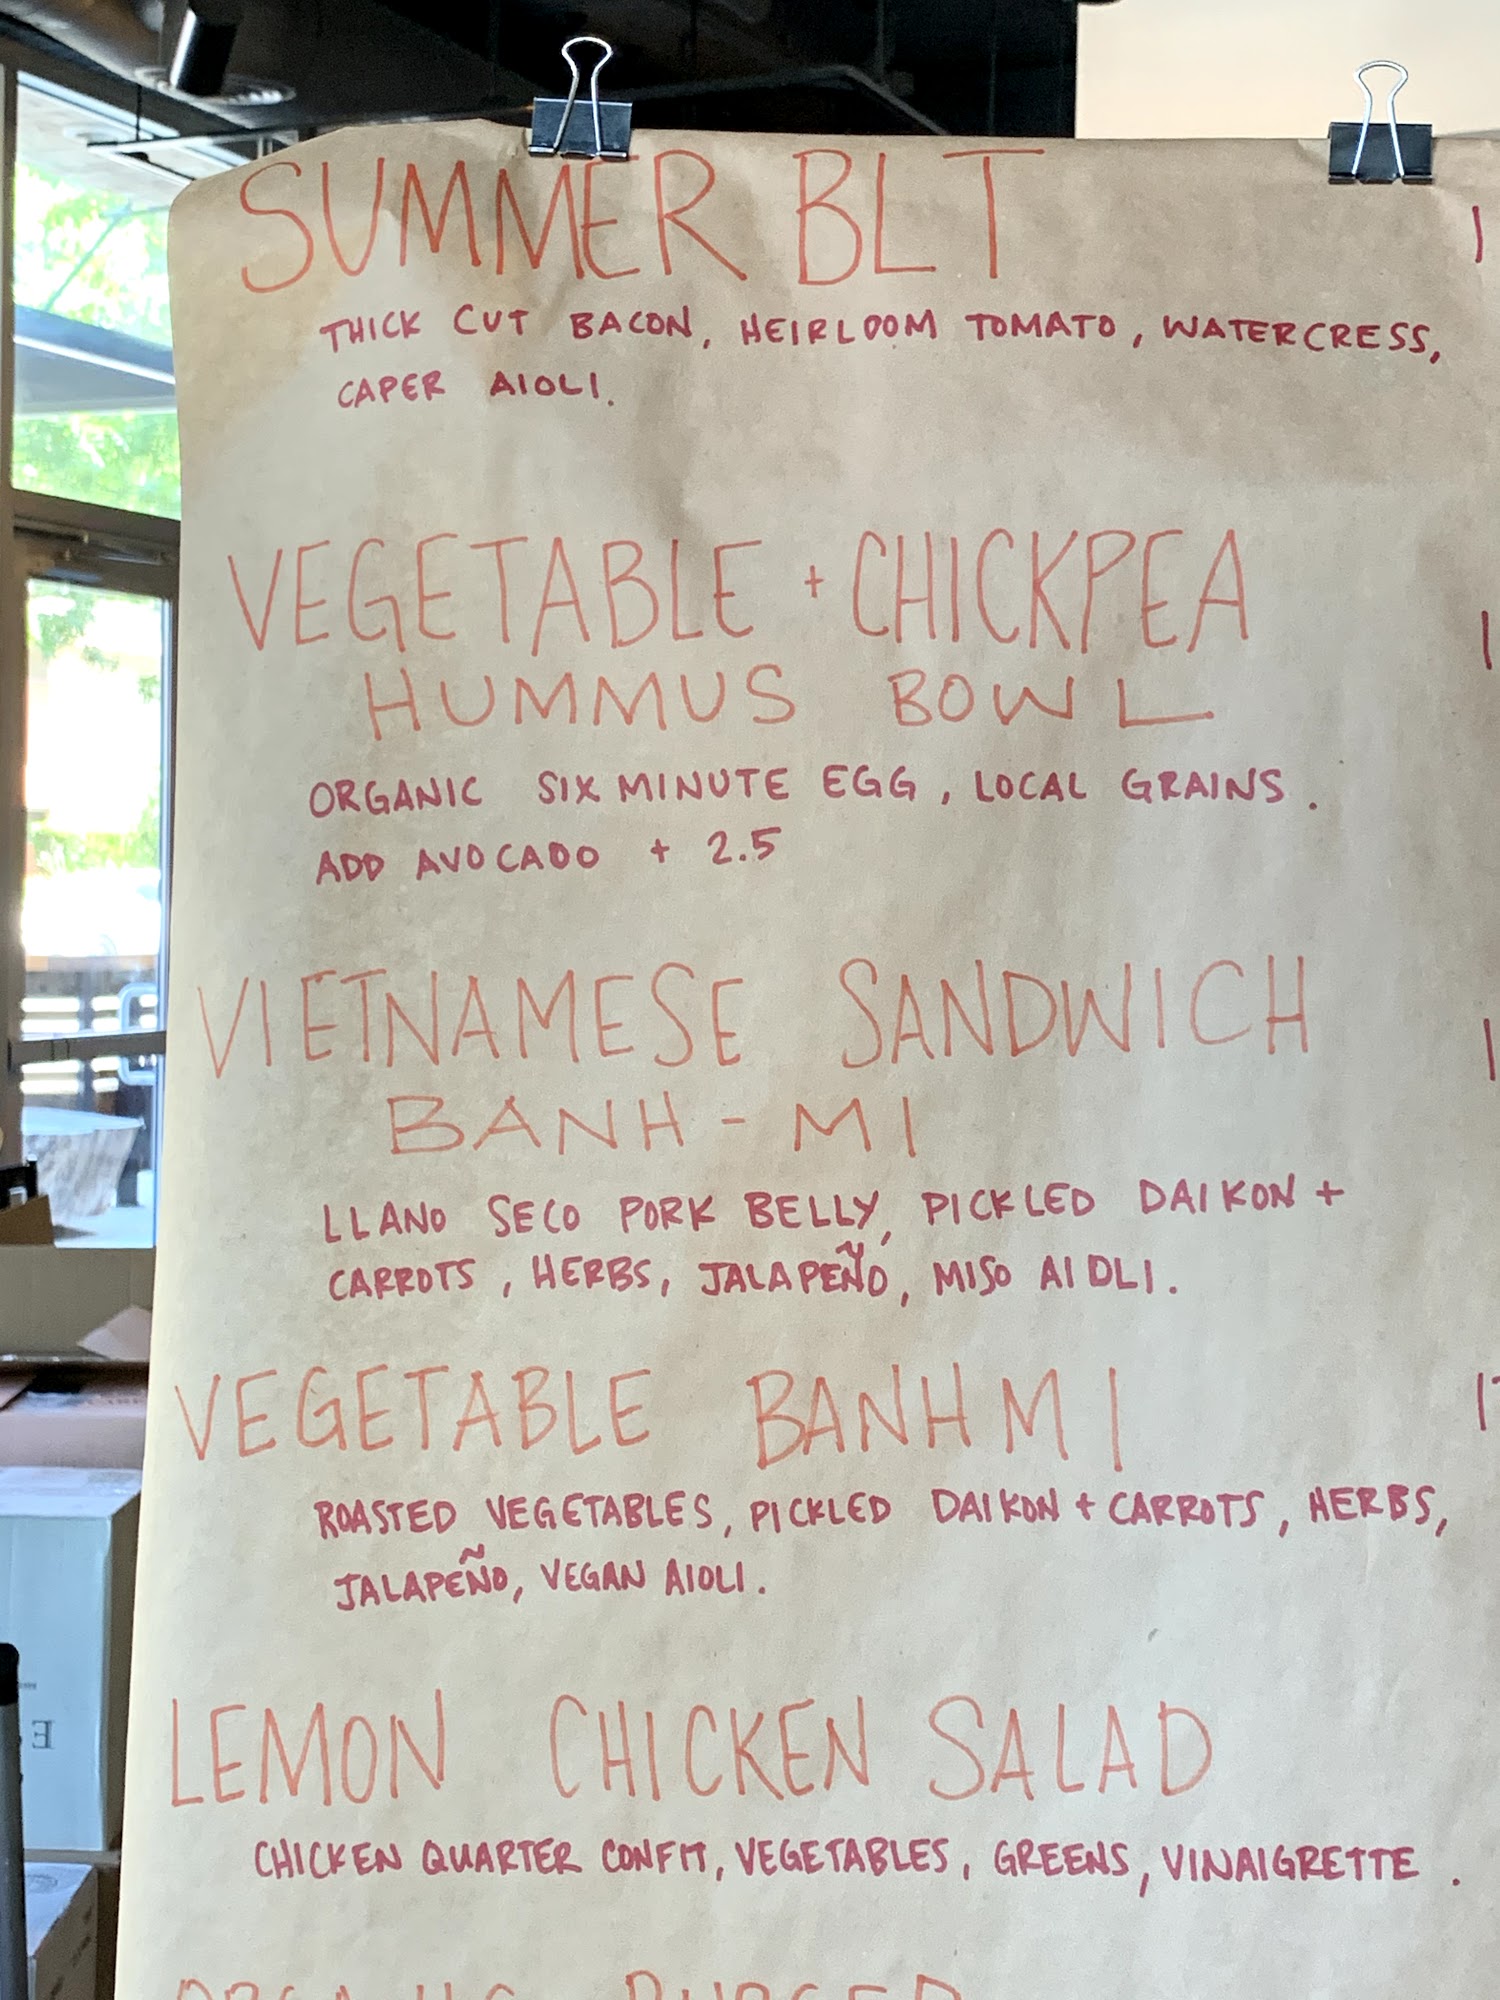 SUMMER BLT
THICK CUT BACON, HEIRLOOM TOMATO, WATERCRESS,
CAPER AIOLI.
VEGETABLE + CHICKPEA
HUMMUS BOWL
ORGANIC SIX MINUTE EGG, LOCAL GRAINS.
ADD AVOCADO + 2.5
VIETNAMESE SANDWICH
BANH-MI
LLANO SECO PORK BELLY, PICKLED DAIKON +
CARROTS, HERBS, JALAPEÑO, MISO AIOLI.
VEGETABLE BANH MI
ROASTED VEGETABLES, PICKLED DAIKON + CARROTS, HERBS,
JALAPEÑO, VEGAN AIOLI.
LEMON CHICKEN SALAD
CHICKEN QUARTER CONFIT, VEGETABLES, GREENS, VINAIGRETTE.